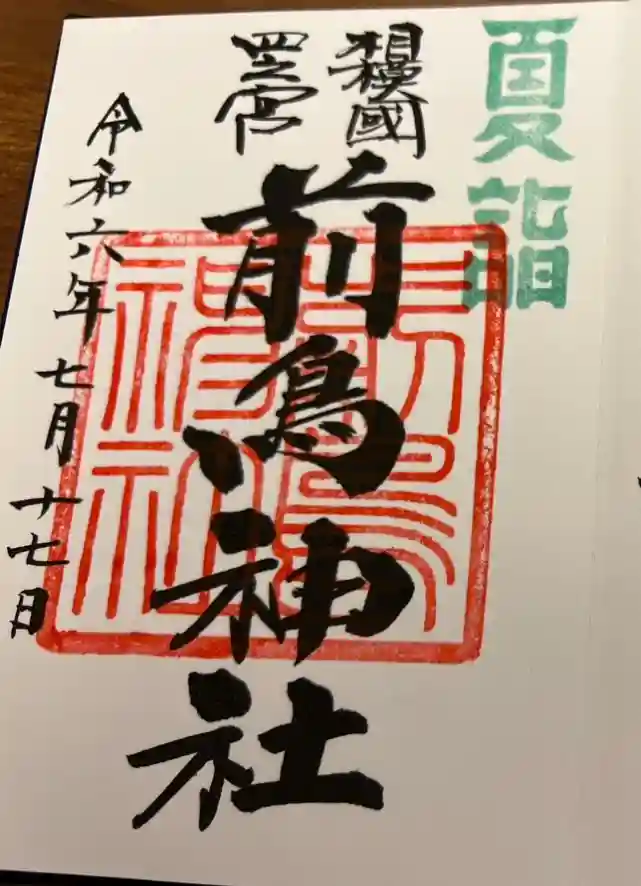 夏詣
相模國
四之宮
前鳥神社
前鳥
神社
令和六年七月十七日